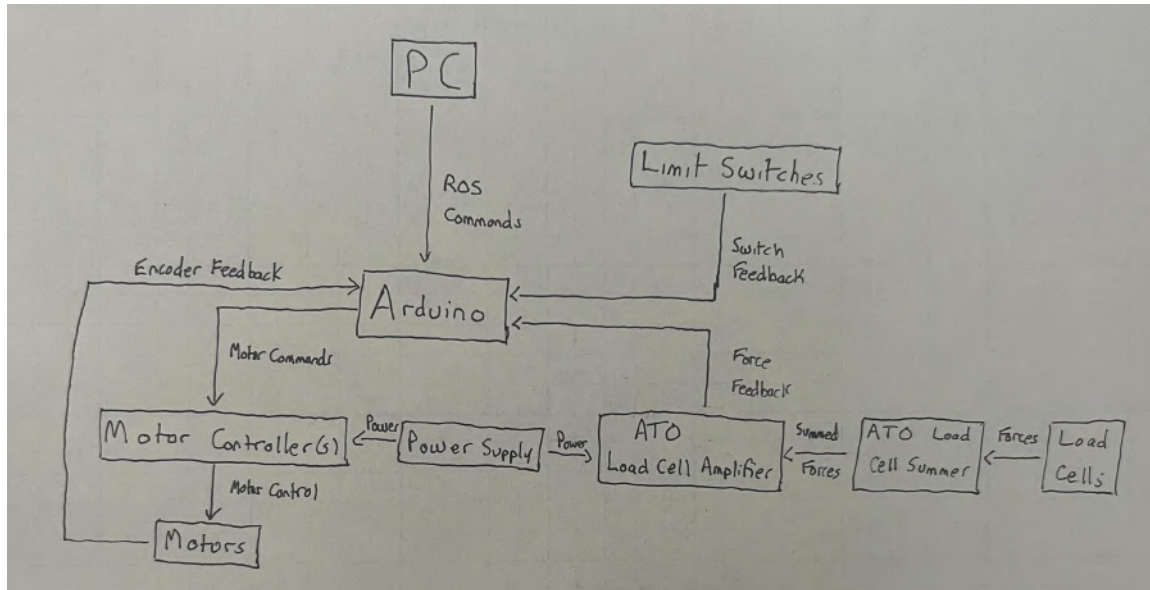 PC
ROS
Commands
Limit Switches
Switch
Feedback
Encoder Feedback
Arduino
Motor Commands
Force
Feedback
Motor Controller(s)
Power
Power Supply
Power
ATO
Load Cell Amplifier
Summed
Forces
ATO Load
Cell Summer
Forces
Load
Cells
Motor Control
Motors